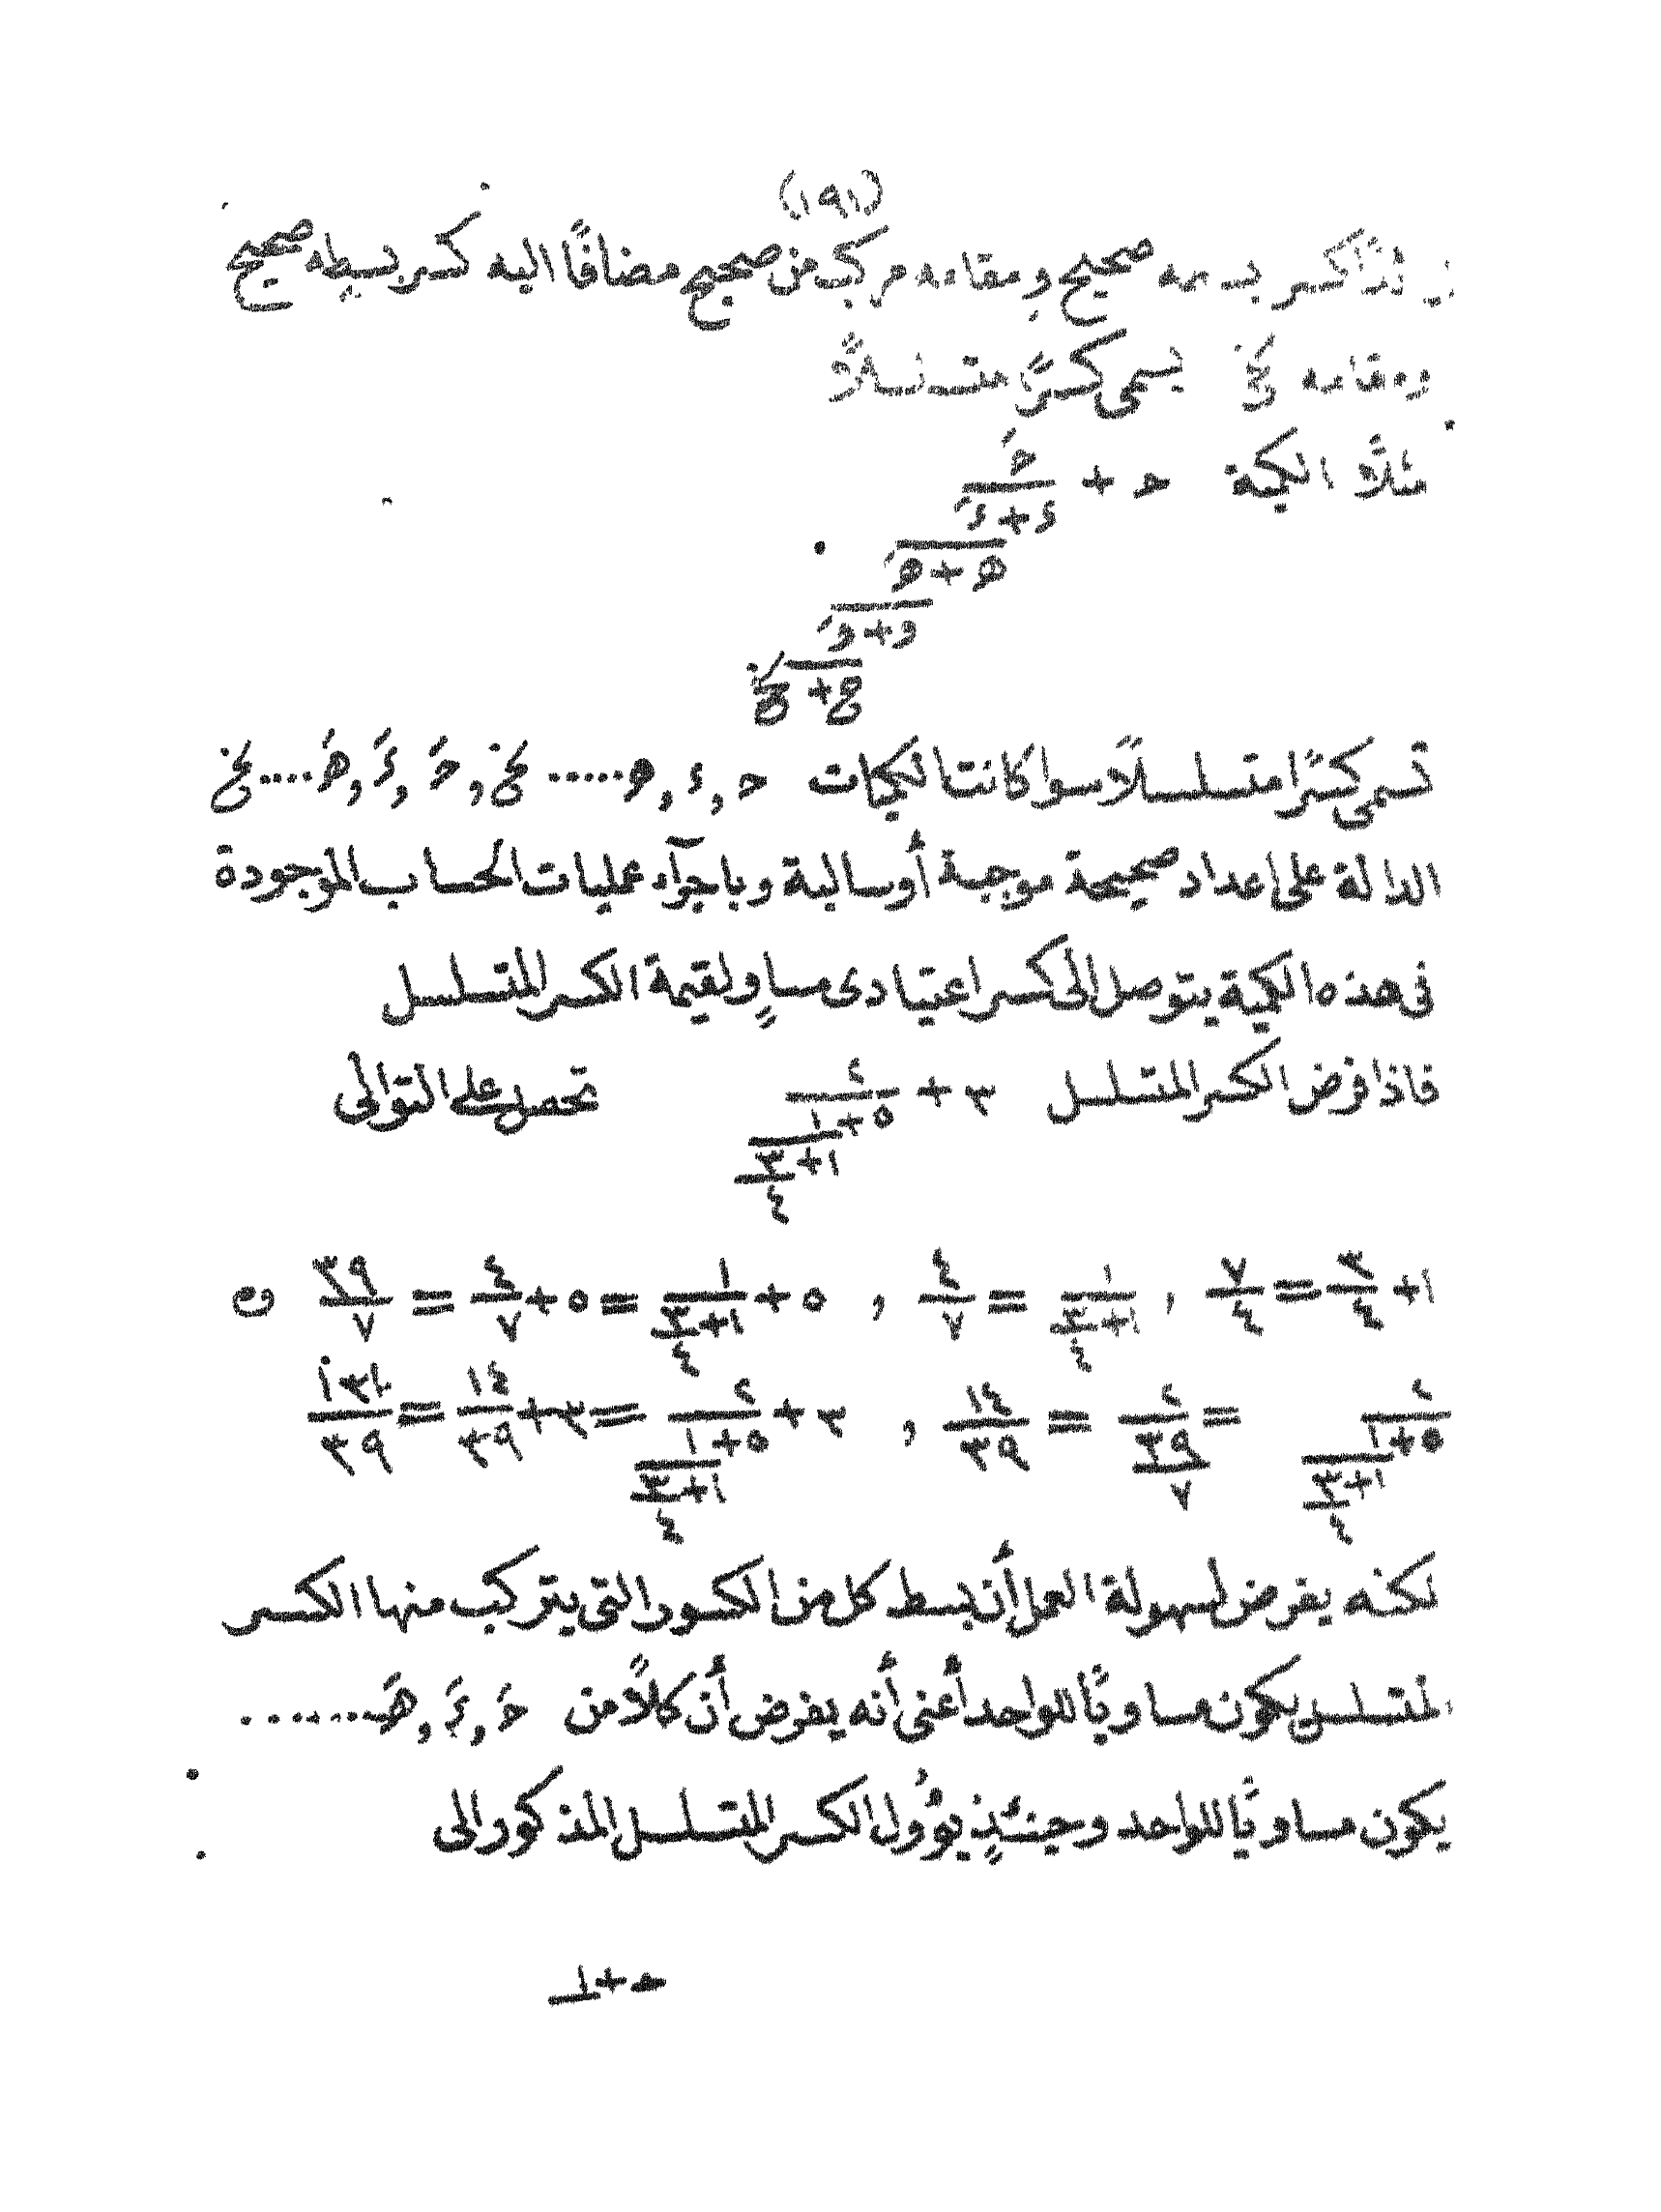 (١٩١)
كسر بسطه صحيح ومقامه مركب من صحيح مضافًا اليه كسر بسطه صحيح
ومقامه الخ يسمى كسرًا متسلسلًا
مثلًا الكمية حـ + حَـ/(ء + ءَ/(هـ + هَـ/(و + وَ/(ع + الخ
تسمى كسرًا متسلسلًا سوا كانت الكميات حـ , ء , هـ ..... الخ , حَـ , ءَ , هَـ .... الخ
الدالة على اعداد صحيحة موجبة أوسالبة وباجرآء عمليات الحساب الموجودة
فى هذه الكمية يتوصل الى كسر اعتيادى مساوٍ لقيمة الكسر المتسلسل
فاذا فرض الكسر المتسلسل ٣ + ٢/(٥ + ١/(١ + ٣/٤)) تحصل على التوالى
١ + ٣/٤ = ٧/٤ , ١/(١ + ٣/٤) = ٤/٧ , ٥ + ١/(١ + ٣/٤) = ٥ + ٤/٧ = ٣٩/٧ و
٢/(٥ + ١/(١ + ٣/٤)) = ٢/(٣٩/٧) = ١٤/٣٩ , ٣ + ٢/(٥ + ١/(١ + ٣/٤)) = ٣ + ١٤/٣٩ = ١٣١/٣٩
لكنه يفرض لسهولة العمل أن بسط كل من الكسور التى يتركب منها الكسر
المتسلسل يكون مساويًا للواحد أعنى أنه يفرض أن كلًا من حَـ , ءَ , هَـ ........
يكون مساويًا للواحد وحينئذٍ يؤول الكسر المتسلسل المذكور الى
حـ + ١